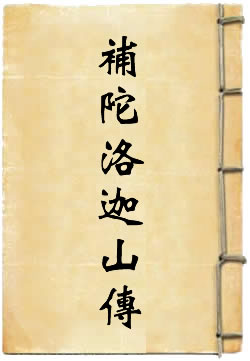 補陀洛迦山傳